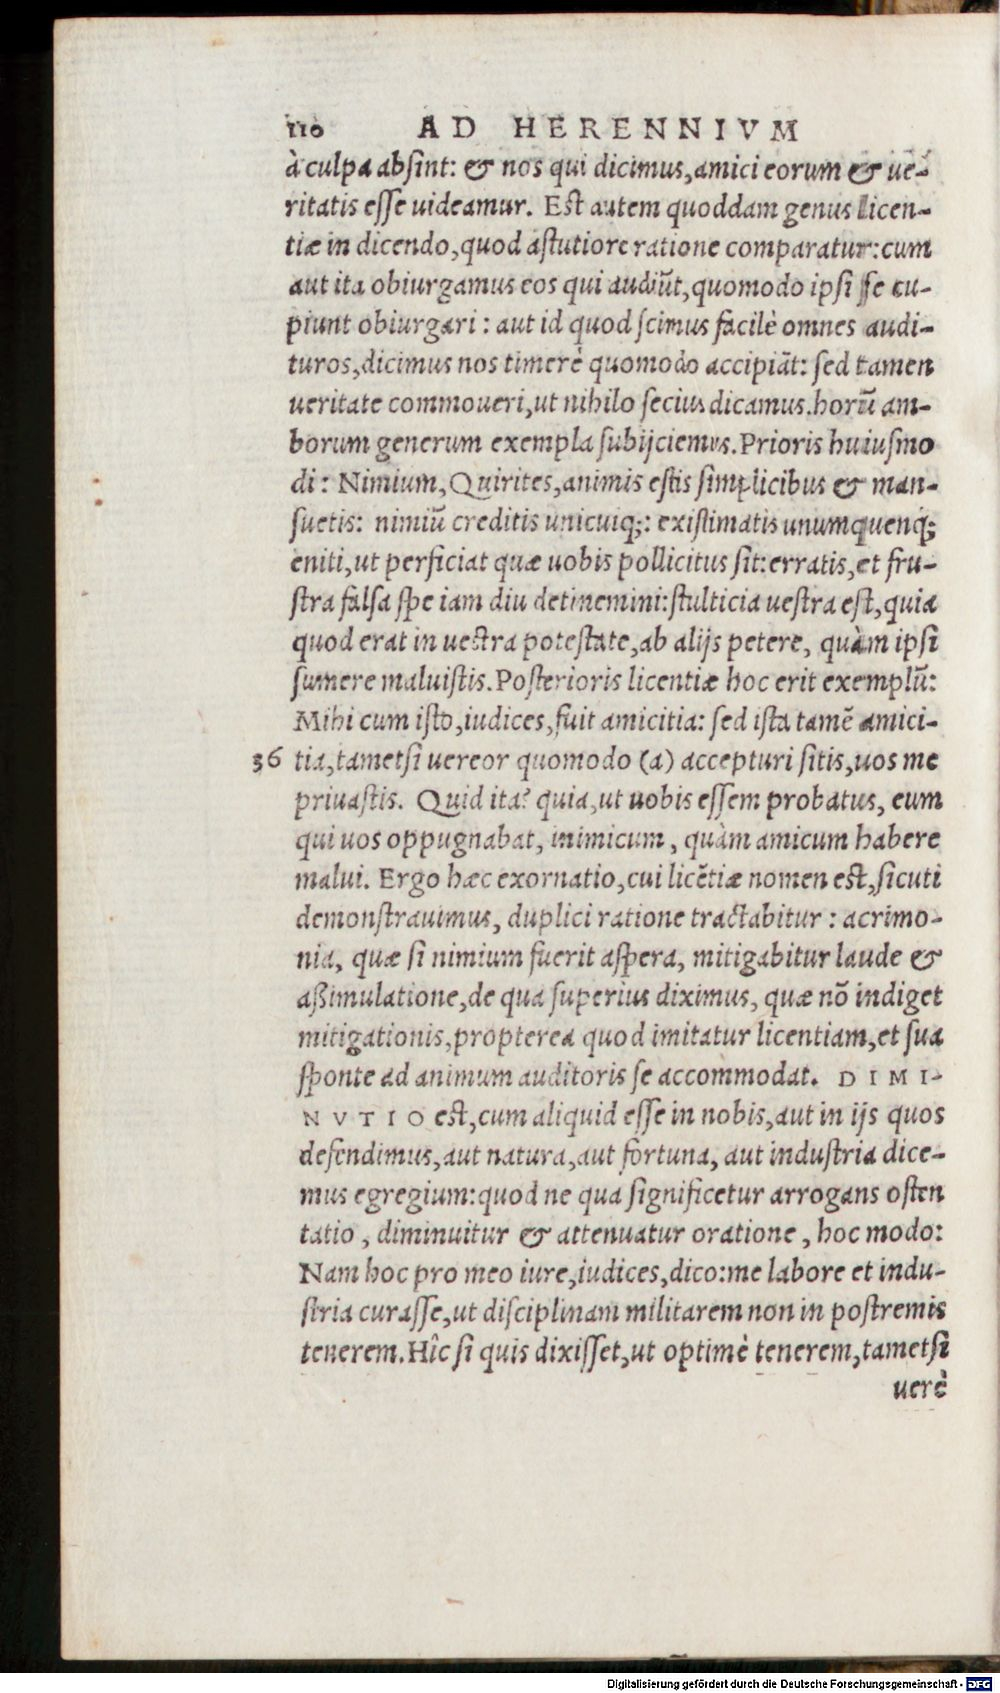 110 AD HERENNIVM
à culpa absint: & nos qui dicimus, amici eorum & ue-
ritatis esse uideamur. Est autem quoddam genus licen-
tiæ in dicendo, quod astutiore ratione comparatur: cum
aut ita obiurgamus eos qui audiũt, quomodo ipsi se cu-
piunt obiurgari: aut id quod scimus facilè omnes audi-
turos, dicimus nos timerè quomodo accipiãt: sed tamen
ueritate commoueri, ut nihilo secius dicamus. horũ am-
borum generum exempla subijciemus. Prioris huiusmo
di: Nimium, Quirites, animis estis simplicibus & man-
suetis: nimiũ creditis unicuiq;: existimatis unumquenq;
eniti, ut perficiat quæ uobis pollicitus sit: erratis, et fru-
stra falsa spe iam diu detinemini: stulticia uestra est, quia
quod erat in uestra potestate, ab alijs petere, quàm ipsi
sumere maluistis. Posterioris licentiæ hoc erit exemplũ:
Mihi cum isto, iudices, fuit amicitia: sed ista tamẽ amici-
36 tia, tametsi uereor quomodo (a) accepturi sitis, uos me
priuastis. Quid ita? quia, ut uobis essem probatus, eum
qui uos oppugnabat, inimicum, quàm amicum habere
malui. Ergo hæc exornatio, cui licẽtiæ nomen est, sicuti
demonstrauimus, duplici ratione tractabitur: acrimo-
nia, quæ si nimium fuerit aspera, mitigabitur laude &
aßimulatione, de qua superius diximus, quæ nõ indiget
mitigationis, propterea quod imitatur licentiam, et sua
sponte ad animum auditoris se accommodat. DIMI-
NVTIO est, cum aliquid esse in nobis, aut in ijs quos
defendimus, aut natura, aut fortuna, aut industria dice-
mus egregium: quod ne qua significetur arrogans osten
tatio, diminuitur & attenuatur oratione, hoc modo:
Nam hoc pro meo iure, iudices, dico: me labore et indu-
stria curasse, ut disciplinam militarem non in postremis
tenerem. Hîc si quis dixisset, ut optimè tenerem, tametsi
uerè
Digitalisierung gefördert durch die Deutsche Forschungsgemeinschaft - DFG